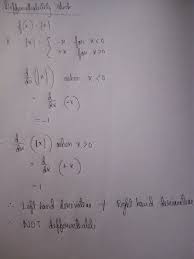 Differentiability check
f(x) = |x|
|x| = { -x for x<0
+x for x>0
d/dx (|x|) when x<0
= d/dx (-x)
= -1
d/dx (|x|) when x>0
= d/dx (+x)
= -1
∴ Left hand derivative ≠ Right hand derivative
∴ NOT differentiable